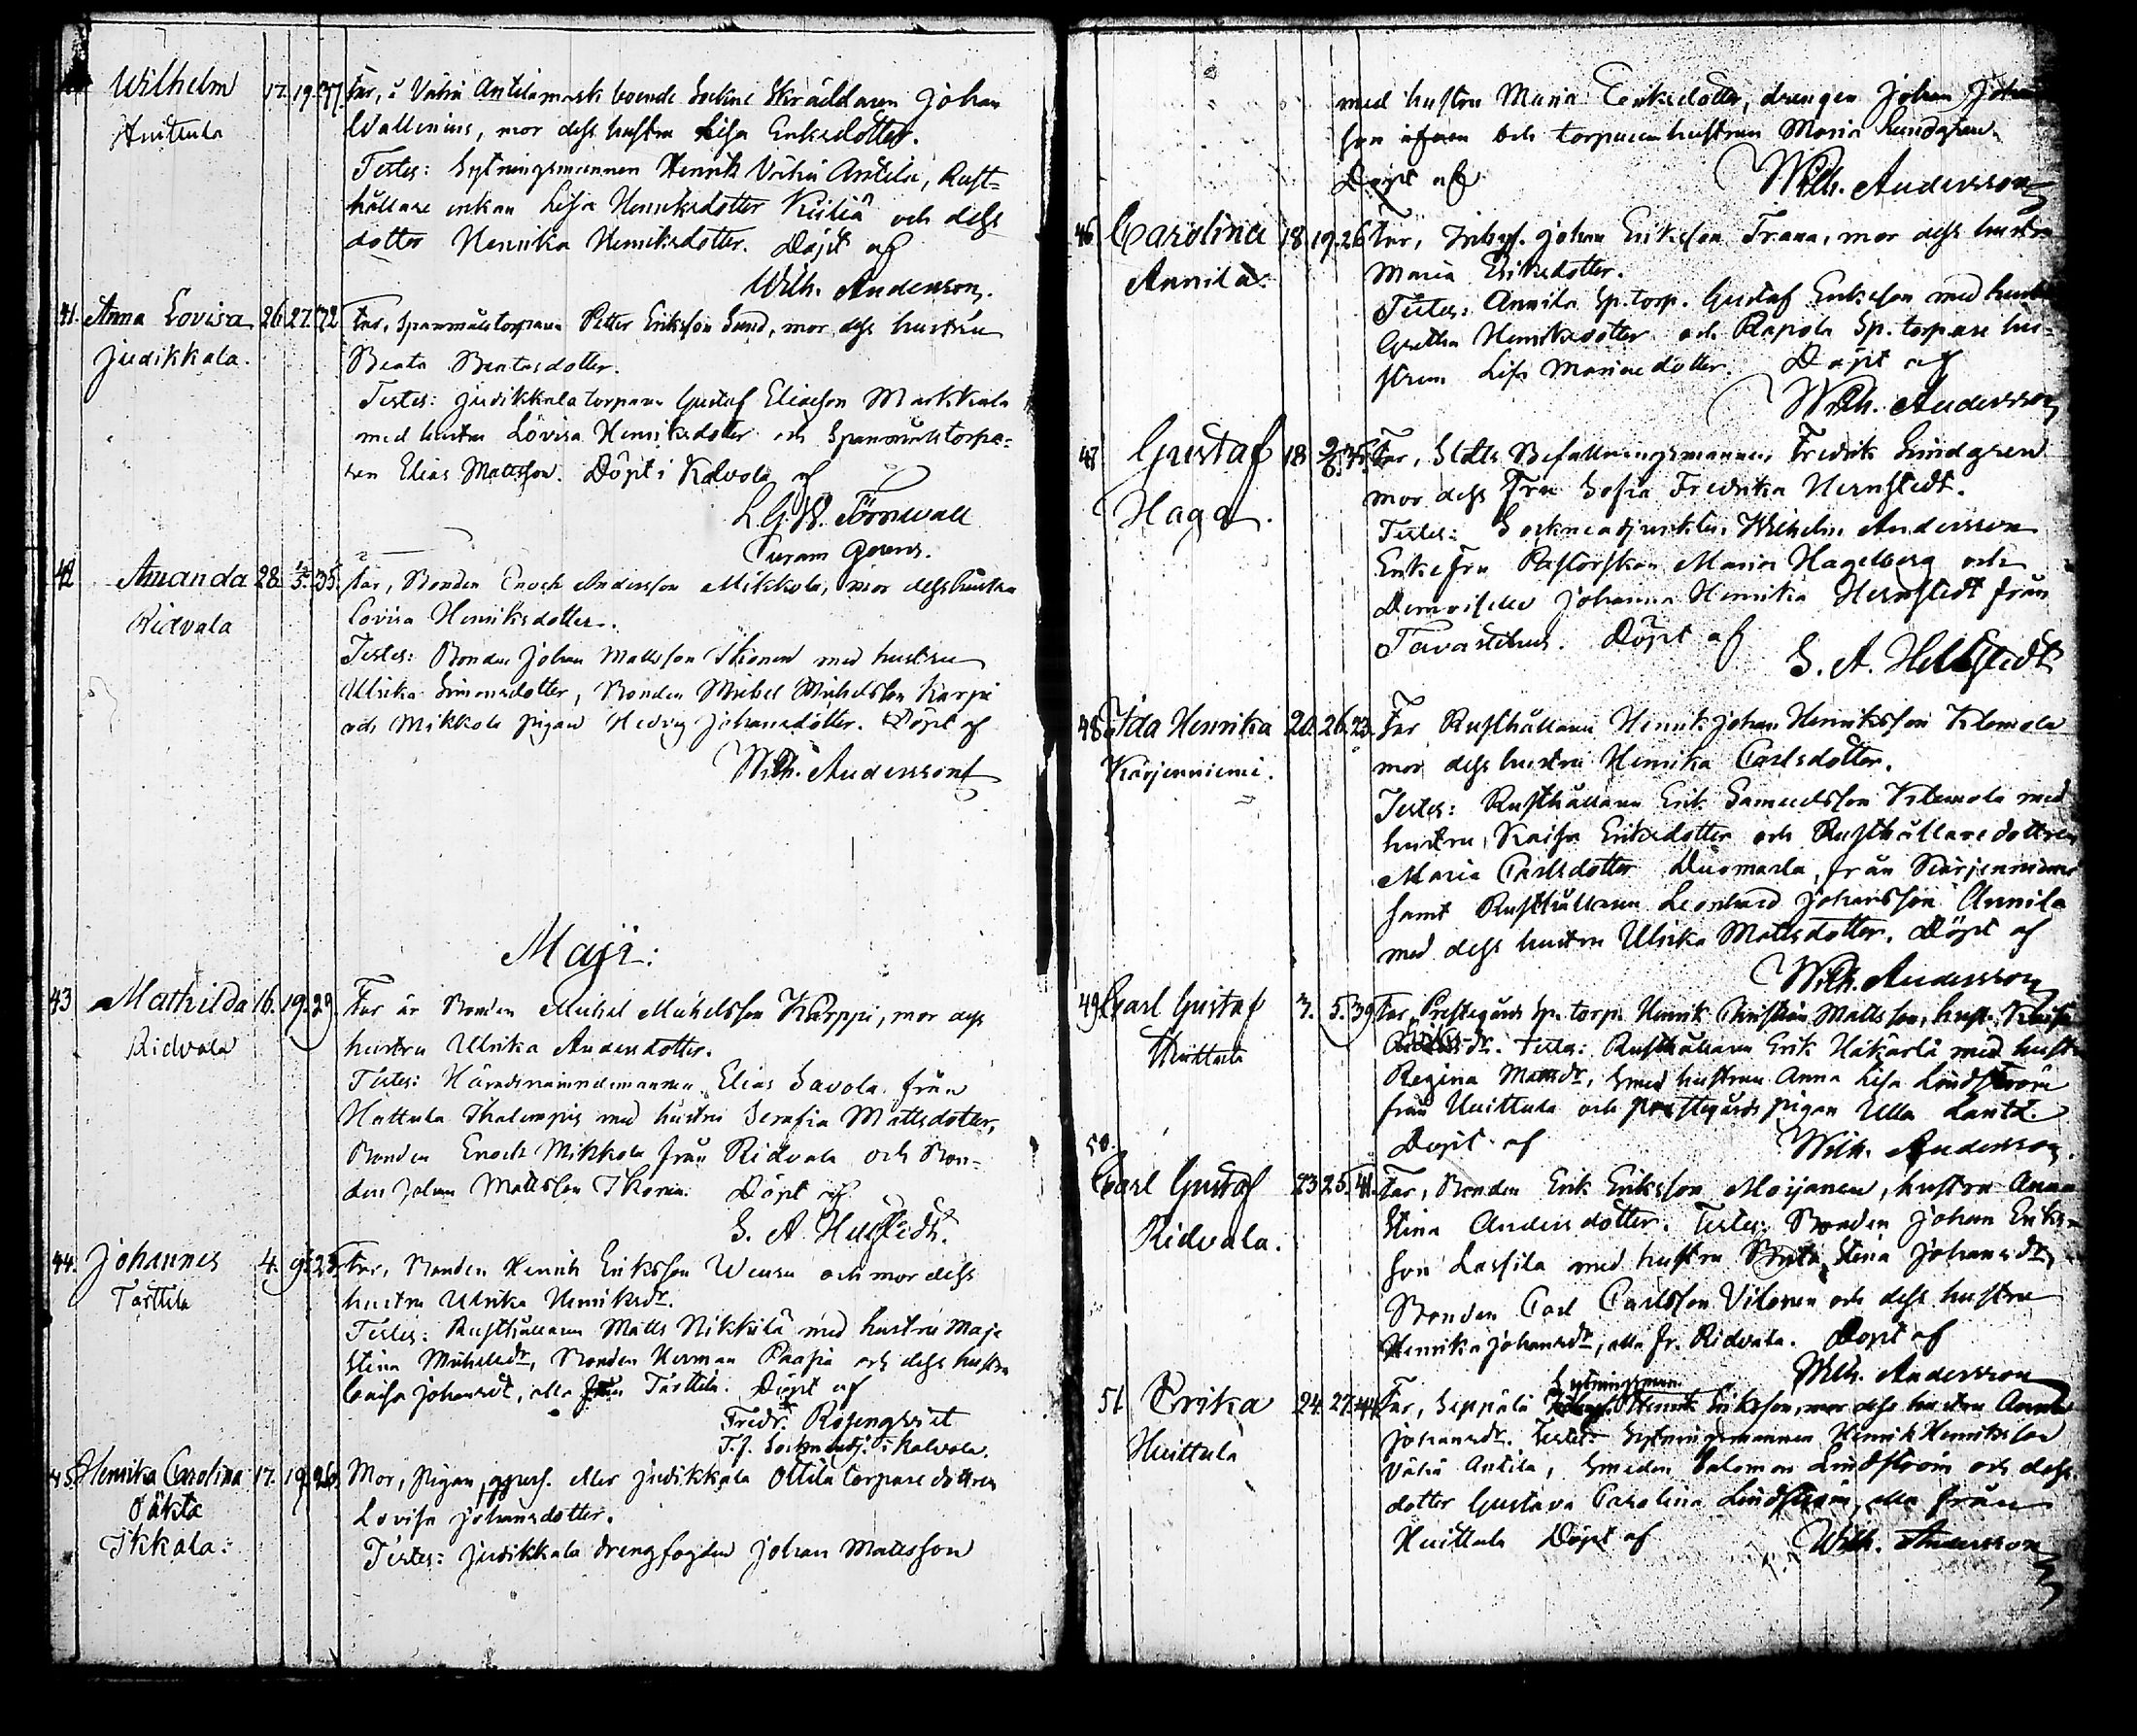 Wilhelm 17. 19. 37. Far, å Vähä Antila mark boende Sockne Skräddaren Johan
Huittula Wallenius, mor dess hustru Lisa Eriksdotter.
Testes: Sytningsmannen Henrik Vähä Antila, Rust-
hållare enkan Lisa Henriksdotter Kiiliä och dess
dotter Henrika Henriksdotter. Döpt af
Wilh. Andersson.
41. Anna Lovisa 26. 27. 32 Far, Spanmålstorparen Petter Eriksson Sund, mor dess hustru
Judikkala. Beata Beatasdotter.
Testes: Judikkala torparen Gustaf Eliasson Markkala
med hustru Lovisa Henriksdotter och Spanmålstorpa-
ren Elias Mattsson. Döpt i Kalvola af
L. G. W. Törnwall
Curam Gerens.
42 Amanda 28. 1/5. 35. Far, Bonden Enoch Andersson Mikkola, mor dess hustru
Ridvala Lovisa Henriksdotter.
Testes: Bonden Johan Mattsson Ikonen med hustru
Ulrika Simonsdotter, Bonden Michel Michelsson Karpi
och Mikkola pigan Hedvig Johansdotter. Döpt af
Wilh. Andersson
Maji:
43 Mathilda 16. 19. 29. Far är Bonden Michel Michelsson Karppi, mor dess
Ridvala hustru Ulrika Andersdotter.
Testes: Häradsnämndemannen Elias Savola från
Hattula Ihalempis med hustru Serafia Mattsdotter,
Bonden Enoch Mikkola från Ridvala och Bon-
den Johan Mattsson Ikonen. Döpt af
S. A. Hellstedt.
44. Johannes 4. 9. 23. Far, Bonden Henrik Eriksson Wensu och mor dess
Tarttila hustru Ulrika Henriksdr.
Testes: Rusthållaren Matts Nikkilä med hustru Maja
Stina Michelsdr, Bonden Herman Paapia och dess hustru
Caisa Johansdr, alla från Tarttila. Döpt af
Fredr. Rosengviet
T.f. Socknadj. i Kalvola.
45. Henrika Carolina 17. 19. 26. Mor, pigan, eller Judikkala Ottila torpare dottren
Oäkta Lovisa Johansdotter.
Ikkala: Testes: Judikkala drengfogden Johan Mattsson
med hustru Maria Eriksdotter, drengen Johan Johans
son och torparenhustrun Maria Lundgren.
Döpt af Wilh. Andersson
46 Carolina 18. 19. 26 Far, Inhys. Johan Eriksson Frana, mor dess hustru
Annila. Maria Eriksdotter.
Testes: Annila Sp. torp. Gustaf Eriksson med hustru
Gretha Henriksdotter och Rapola Sp. torpare hu-
strun Lisa Mariaedotter. Döpt af
Wilh. Andersson
47 Gustaf 18 Far, Befallningsmannen Fredrik Lindgren
Haga. mor dess Fru Sofia Fredrika Hernstedt.
Testes: Sockneadjunkten Wilhelm Andersson
Enkefru Pastorskan Maria Hagelberg och
Demoiselle Johanna Henrika Hernstedt från
Tavastehus. Döpt af S. A. Hellstedt
48 Ida Henrika 20. 26. 23. Far Rusthållaren Henrik Johan Henriksson Klemola
Kärjenniemi. mor dess hustru Henrika Carlsdotter.
Testes: Rusthållaren Erik Samuelsson Klemola med
hustru Kaisa Eriksdotter och Rusthållaredottren
Maria Carlsdotter Duomarla, från Kärjenniemi
samt Rusthållaren Leonhard Johansson Annila
med dess hustru Ulrika Mattsdotter. Döpt af
Wilh. Andersson
49 Carl Gustaf 3. 5. 39 Far, Prestegårds Sp. torp. Henrik Christian Mattsson, hust. Kaisa
Huittula Testes: Rusthållaren Erik Hakarla med hustr
Regina Mattsdr, Smed hustrun Anna Lisa Lindström
från Huittula och prestegårds pigan Ulla Lantz.
Döpt af Wilh. Andersson.
50. Carl Gustaf 23 25. 41. Far, Bonden Erik Eriksson Moijanen, hustru Anna
Ridvala. Stina Andersdotter. Testes: Bonden Johan Eriks-
son Lassila med hustru Brita Stina Johansdr,
Bonden Carl Carlsson Vilonen och dess hustru
Henrika Johansdr, alla fr. Ridvala. Döpt af
Wilh. Andersson
51 Erika 24. 27. 44. Far, Seppälä Sytningsman Henrik Eriksson, mor dess hustru Anna
Huittula Johansdr. Testes: Sytningsmannen Henrik Henriksson
Vähä Antila, Smeden Salomon Lindström och dess
dotter Gustava Carolina Lindström, alla från
Huittula Döpt af Wilh. Andersson